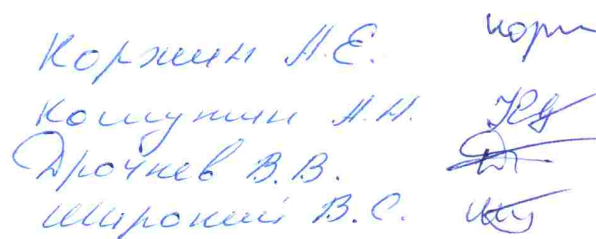 Коржин А.Е. корж
Кошунин А.Н.
Дрочнев В.В.
Широкий В.С.